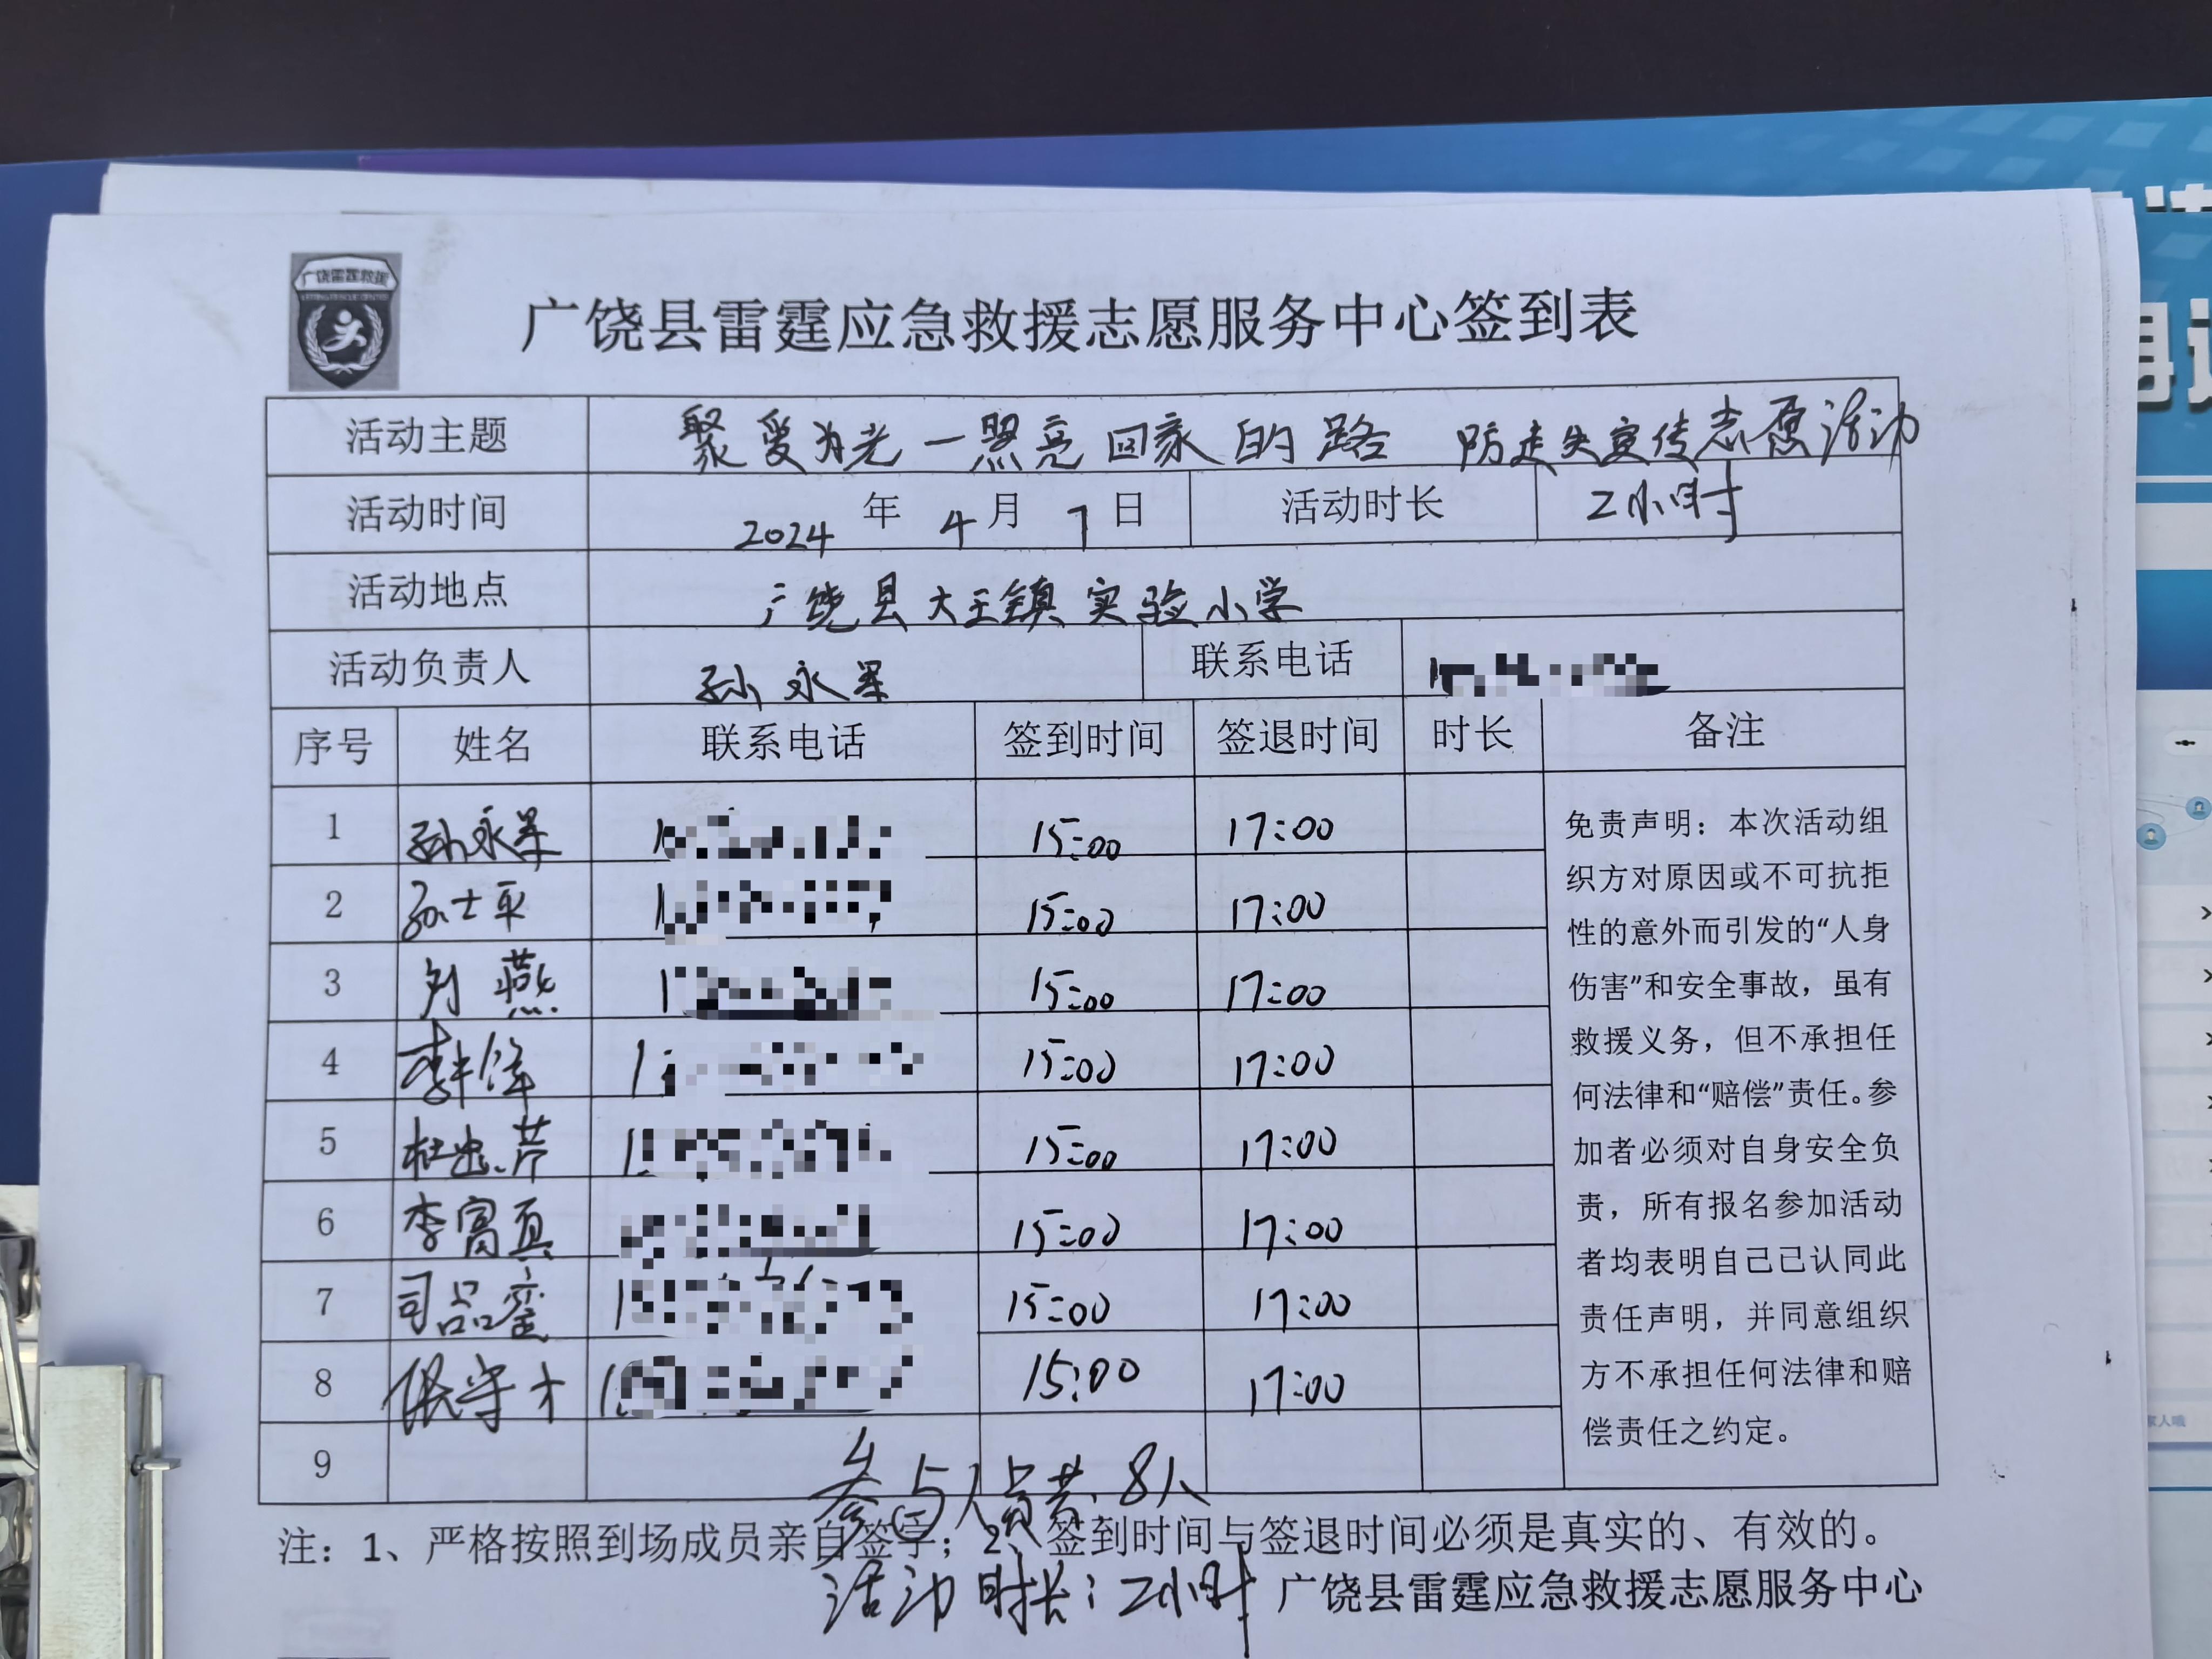 广饶雷霆救援
广饶县雷霆应急救援志愿服务中心签到表
活动主题 聚爱为光一照亮回家的路 防走失宣传志愿活动
活动时间 2024 年 4 月 7 日 活动时长 2小时
活动地点 广饶县大王镇实验小学
活动负责人 孙永 联系电话
序号 姓名 联系电话 签到时间 签退时间 时长 备注
1 孙永 15:00 17:00
2 孙士平 15:00 17:00
3 刘燕 15:00 17:00
4 15:00 17:00
5 杜 芹 15:00 17:00
6 李富真 15:00 17:00
7 司品 15:00 17:00
8 守才 15:00 17:00
9
免责声明：本次活动组
织方对原因或不可抗拒
性的意外而引发的“人身
伤害”和安全事故，虽有
救援义务，但不承担任
何法律和“赔偿”责任。参
加者必须对自身安全负
责，所有报名参加活动
者均表明自己已认同此
责任声明，并同意组织
方不承担任何法律和赔
偿责任之约定。
参与人员共：8人
注：1、严格按照到场成员亲自签字；2、签到时间与签退时间必须是真实的、有效的。
活动时长：2小时
广饶县雷霆应急救援志愿服务中心